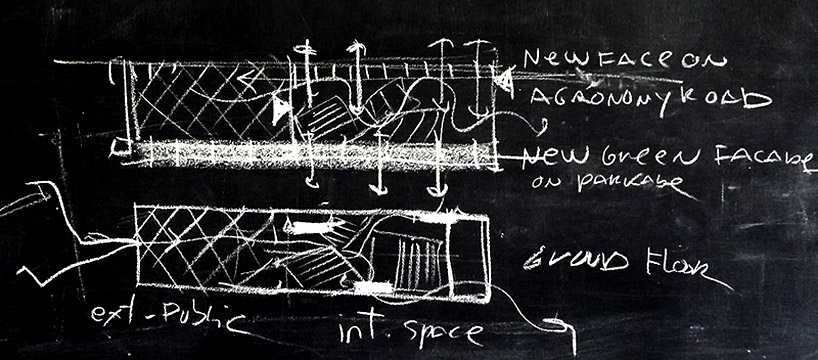 NEW FACE ON
AGRONOMY ROAD
NEW GREEN FACADE
ON PARKADE
GROUND FLOOR
ext-Public
int. space